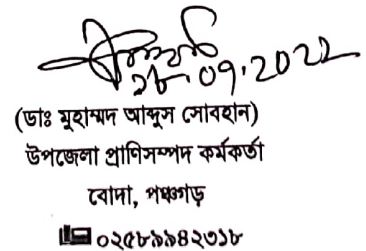 ২৮.০৭.২০২২
(ডাঃ মুহাম্মদ আব্দুস সোবহান)
উপজেলা প্রাণিসম্পদ কর্মকর্তা
বোদা, পঞ্চগড়
০২৫৮৯৯৪২৩১৮